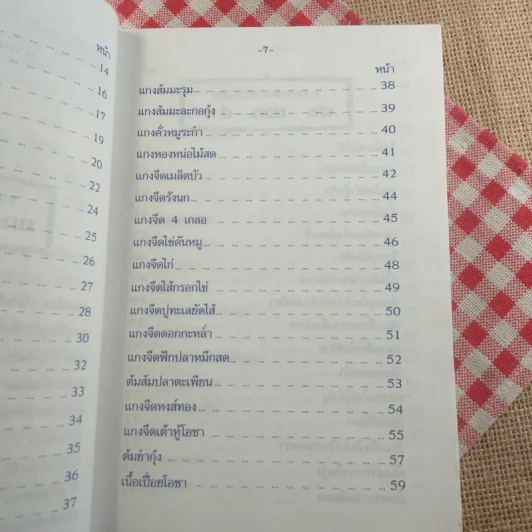 หน้า
14
16
17
19
20
22
24
25
26
27
28
30
32
33
34
35
36
37
-7-
หน้า
แกงส้มมะรุม... ... 38
แกงส้มมะละกอกุ้ง ... 39
แกงคั่วหมูระกำ ... 40
แกงหองหน่อไม้สด... ... 41
แกงจืดเมล็ดบัว ... 42
แกงจืดรังนก... ... 44
แกงจืด 4 เกลอ ... 45
แกงจืดไข่ดันหมู ... 46
แกงจืดไก่ ... 48
แกงจืดไส้กรอกไข่ ... 49
แกงจืดปูทะเลยัดไส้... ... 50
แกงจืดดอกกะหล่ำ ... 51
แกงจืดฟักปลาหมึกสด... ... 52
ต้มส้มปลาตะเพียน... ... 53
แกงจืดหงส์ทอง... ... 54
แกงจืดเต้าหู้โอชา ... 55
ต้มยำกุ้ง ... 57
เนื้อเปื่อยโอชา ... 59